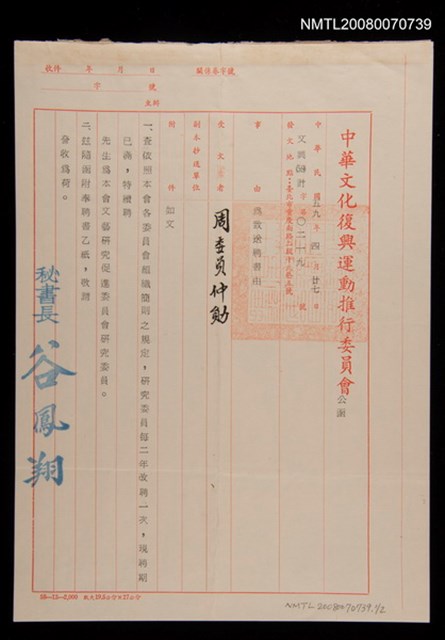 NMTL20080070739
收件 年 月 日
字 號
關係卷字號
主辦
中華文化復興運動推行委員會公函
中華民國五九年四月廿七
文興 計字第〇二一九號
發文地點：臺北市
事由 為致送聘書由
受文者 周委員仲勛
副本抄送單位
附件 如文
一、查依照本會各委員會組織簡則之規定，研究委員每二年改聘一次，現聘期
已滿，特續聘
先生為本會文藝研究促進委員會研究委員。
二、茲隨函附奉聘書乙紙，敬請
發收為荷。
秘書長 谷鳳翔
58—12—2,000
NMTL 20080070739.1/2